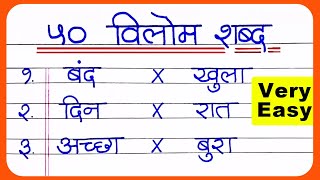 ५० विलोम शब्द
१. बंद X खुला
२. दिन X रात
३. अच्छा X बुरा
Very
Easy